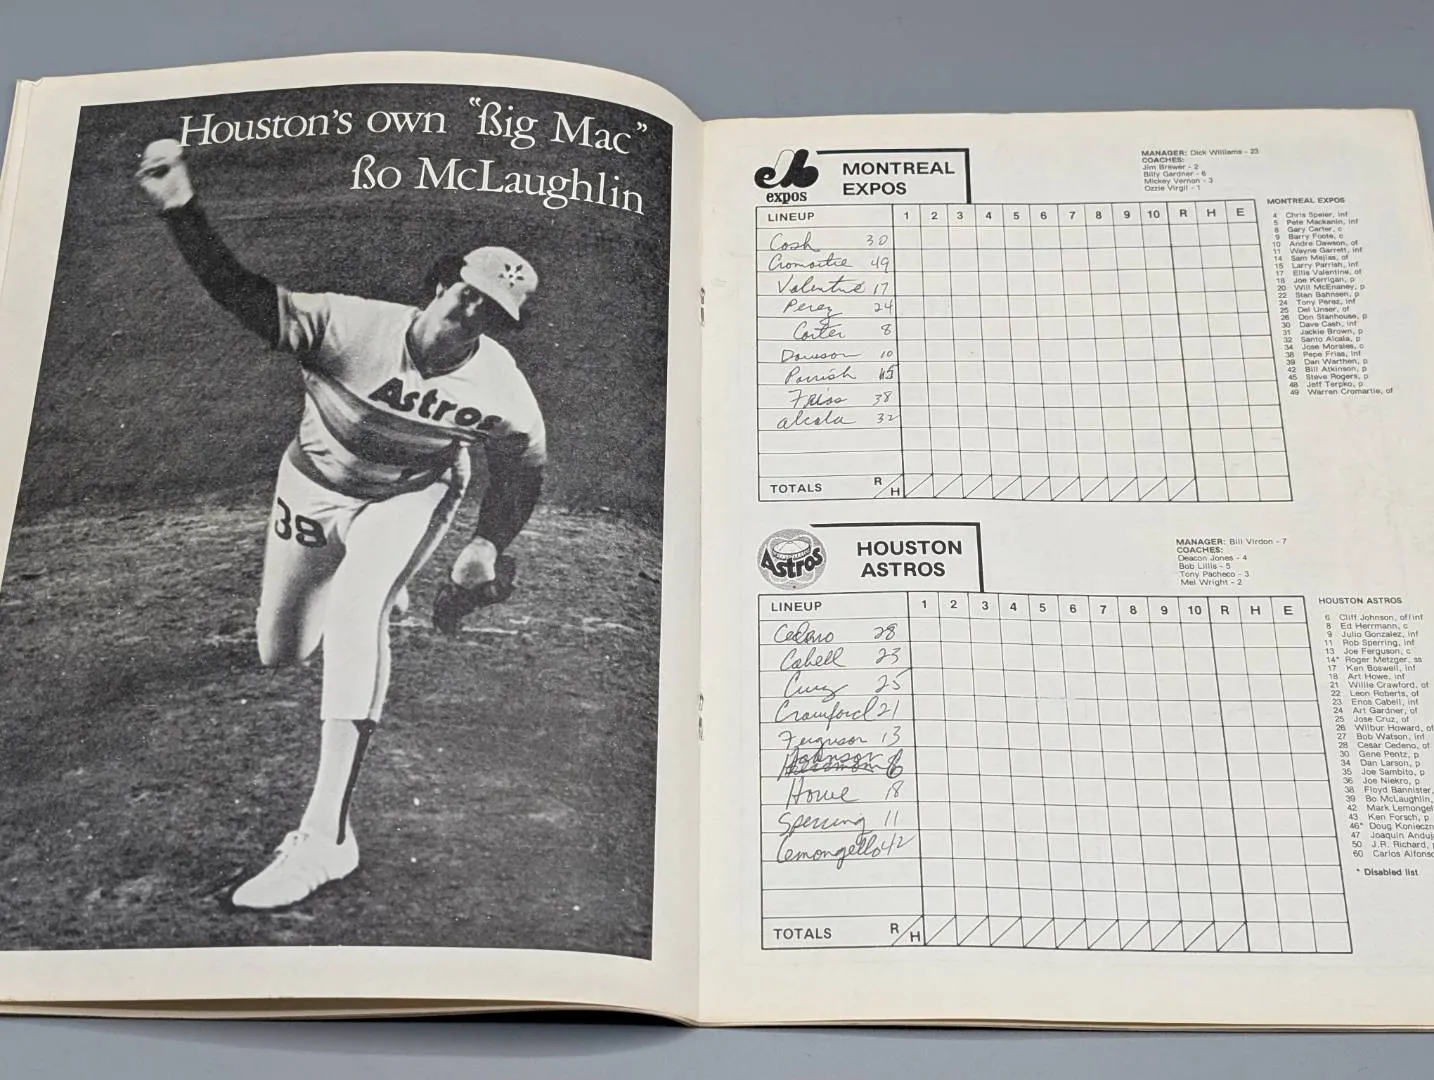 Houston's own "Big Mac"
Bo McLaughlin
Astros
39
expos
MONTREAL
EXPOS
MANAGER: Dick Williams - 23
COACHES:
Jim Brewer - 2
Billy Gardner - 6
Mickey Vernon - 3
Ozzie Virgil - 1
LINEUP 1 2 3 4 5 6 7 8 9 10 R H E
Cash 30
Cromartie 49
Valentine 17
Perez 24
Carter 8
Dawson 10
Parrish 15
Frias 38
Alcala 32
TOTALS R H
MONTREAL EXPOS
4 Chris Speier, inf
5 Pete Mackanin, inf
8 Gary Carter, c
9 Barry Foote, c
10 Andre Dawson, of
11 Wayne Garrett, inf
14 Sam Mejias, of
15 Larry Parrish, inf
17 Ellis Valentine, of
18 Joe Kerrigan, p
20 Will McEnaney, p
22 Stan Bahnsen, p
24 Tony Perez, inf
25 Del Unser, of
26 Don Stanhouse, p
30 Dave Cash, inf
31 Jackie Brown, p
32 Santo Alcala, p
34 Jose Morales, c
38 Pepe Frias, inf
39 Dan Warthen, p
42 Bill Atkinson, p
45 Steve Rogers, p
48 Jeff Terpko, p
49 Warren Cromartie, of
Astros
HOUSTON
ASTROS
MANAGER: Bill Virdon - 7
COACHES:
Deacon Jones - 4
Bob Lillis - 5
Tony Pacheco - 3
Mel Wright - 2
LINEUP 1 2 3 4 5 6 7 8 9 10 R H E
Cedeno 28
Cabell 23
Cruz 25
Crawford 21
Ferguson 13
Johnson 6
Howe 18
Sperring 11
Lemongello 42
TOTALS R H
HOUSTON ASTROS
6 Cliff Johnson, of/inf
8 Ed Herrmann, c
9 Julio Gonzalez, inf
11 Rob Sperring, inf
13 Joe Ferguson, c
14* Roger Metzger, ss
17 Ken Boswell, inf
18 Art Howe, inf
21 Willie Crawford, of
22 Leon Roberts, of
23 Enos Cabell, inf
24 Art Gardner, of
25 Jose Cruz, of
26 Wilbur Howard, of
27 Bob Watson, inf
28 Cesar Cedeno, of
30 Gene Pentz, p
34 Dan Larson, p
35 Joe Sambito, p
36 Joe Niekro, p
38 Floyd Bannister,
39 Bo McLaughlin,
42 Mark Lemongel
43 Ken Forsch, p
46* Doug Konieczn
47 Joaquin Anduj
50 J.R. Richard,
60 Carlos Alfons
* Disabled list